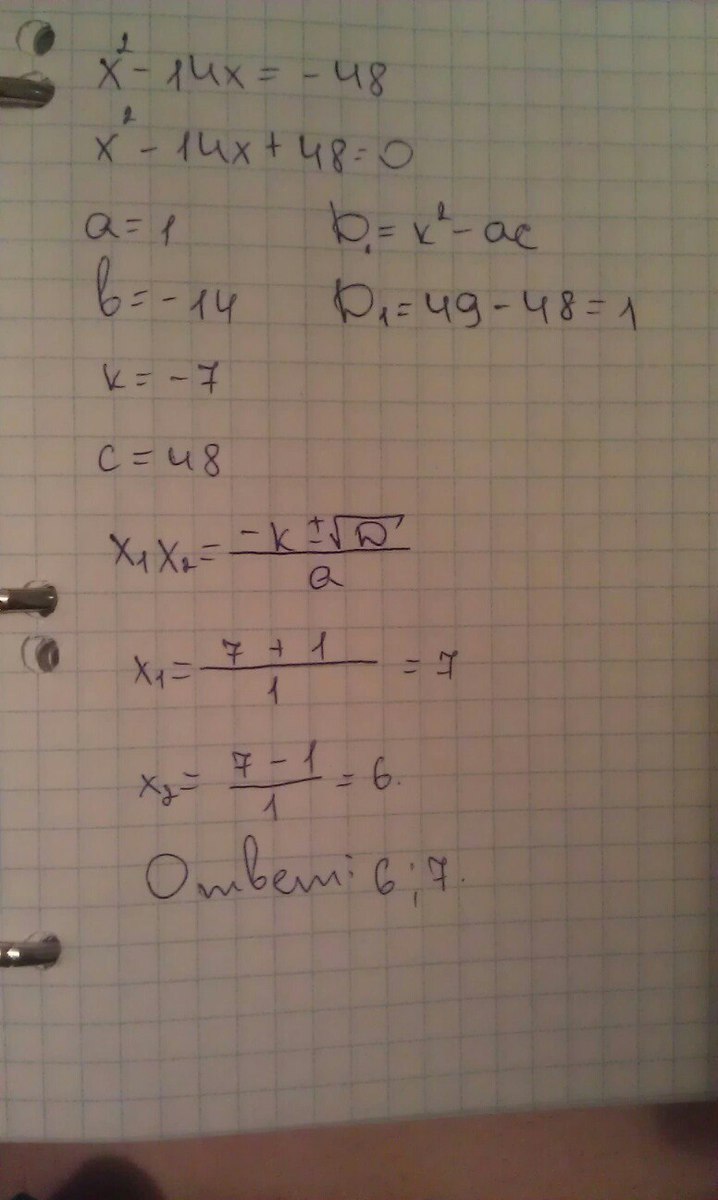 x² - 14x = - 48
x² - 14x + 48 = 0
a = 1 D₁ = k² - ac
b = - 14 D₁ = 49 - 48 = 1
k = - 7
c = 48
x₁ x₂ = (- k ± √D) / a
x₁ = (7 + 1) / 1 = 7
x₂ = (7 - 1) / 1 = 6.
Ответ: 6 ; 7.